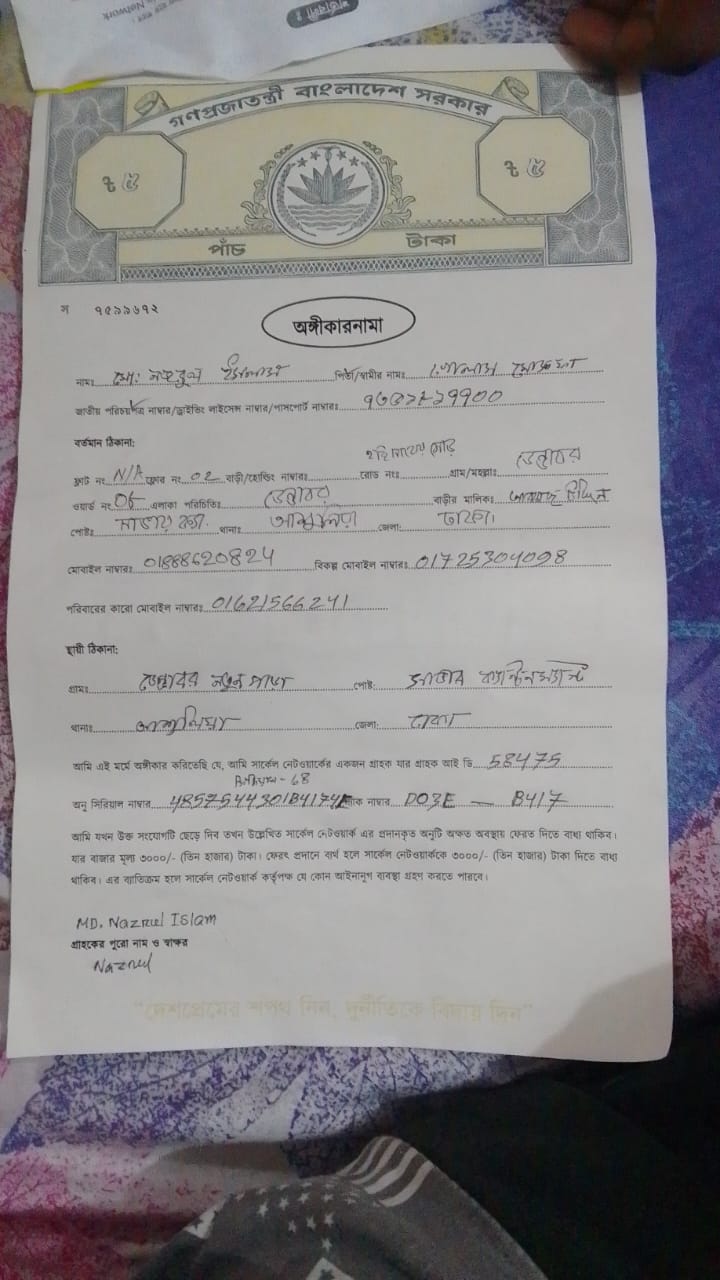 Network
গণপ্রজাতন্ত্রী বাংলাদেশ সরকার
৳ ৫ ৳ ৫
পাঁচ টাকা
স ৭৫৯৯৬৭২
অঙ্গীকারনামা
নামঃ মো: নজরুল ইসলাম পিতা/স্বামীর নামঃ গোলাম মোস্তফা
জাতীয় পরিচয়পত্র নাম্বার/ড্রাইভিং লাইসেন্স নাম্বার/পাসপোর্ট নাম্বারঃ
বর্তমান ঠিকানা:
ফ্লাট নং N/A ফ্লোর নং 02 বাড়ী/হোল্ডিং নাম্বারঃ রোড নংঃ গ্রাম/মহল্লাঃ ডেন্ডাবর
ওয়ার্ড নং 05 এলাকা পরিচিতিঃ ডেন্ডাবর বাড়ীর মালিকঃ
পোষ্টঃ থানাঃ আশুলিয়া জেলা: ঢাকা।
মোবাইল নাম্বারঃ 01888620824 বিকল্প মোবাইল নাম্বারঃ 01725304098
পরিবারের কারো মোবাইল নাম্বারঃ 01621566241
স্থায়ী ঠিকানা:
গ্রামঃ ডেন্ডাবর নতুন পাড়া পোষ্ট: সাভার ক্যান্টনমেন্ট
থানাঃ আশুলিয়া জেলা: ঢাকা
আমি এই মর্মে অঙ্গীকার করিতেছি যে, আমি সার্কেল নেটওয়ার্কের একজন গ্রাহক যার গ্রাহক আই ডি 58475
অনু সিরিয়াল নাম্বার ম্যাক নাম্বার D03E — B417
আমি যখন উক্ত সংযোগটি ছেড়ে দিব তখন উল্লেখিত সার্কেল নেটওয়ার্ক এর প্রদানকৃত অনুটি অক্ষত অবস্থায় ফেরত দিতে বাধ্য থাকিব।
যার বাজার মূল্য ৩০০০/- (তিন হাজার) টাকা। ফেরৎ প্রদানে ব্যর্থ হলে সার্কেল নেটওয়ার্ককে ৩০০০/- (তিন হাজার) টাকা দিতে বাধ্য
থাকিব। এর ব্যতিক্রম হলে সার্কেল নেটওয়ার্ক কর্তৃপক্ষ যে কোন আইনানুগ ব্যবস্থা গ্রহণ করতে পারবে।
MD. Nazrul Islam
গ্রাহকের পুরো নাম ও স্বাক্ষর
Nazrul
"দেশপ্রেমের শপথ নিন, দুর্নীতিকে বিদায় দিন"